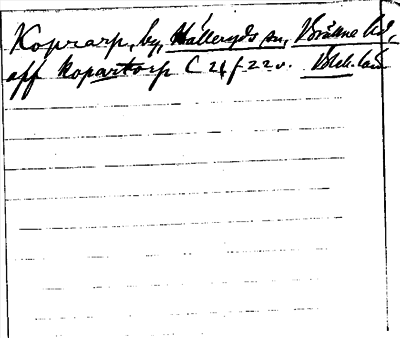 Koprarp, by, Hälleryds sn, Bräkne hd,
aff kopartorp C 21 f 22 v. Blek. län